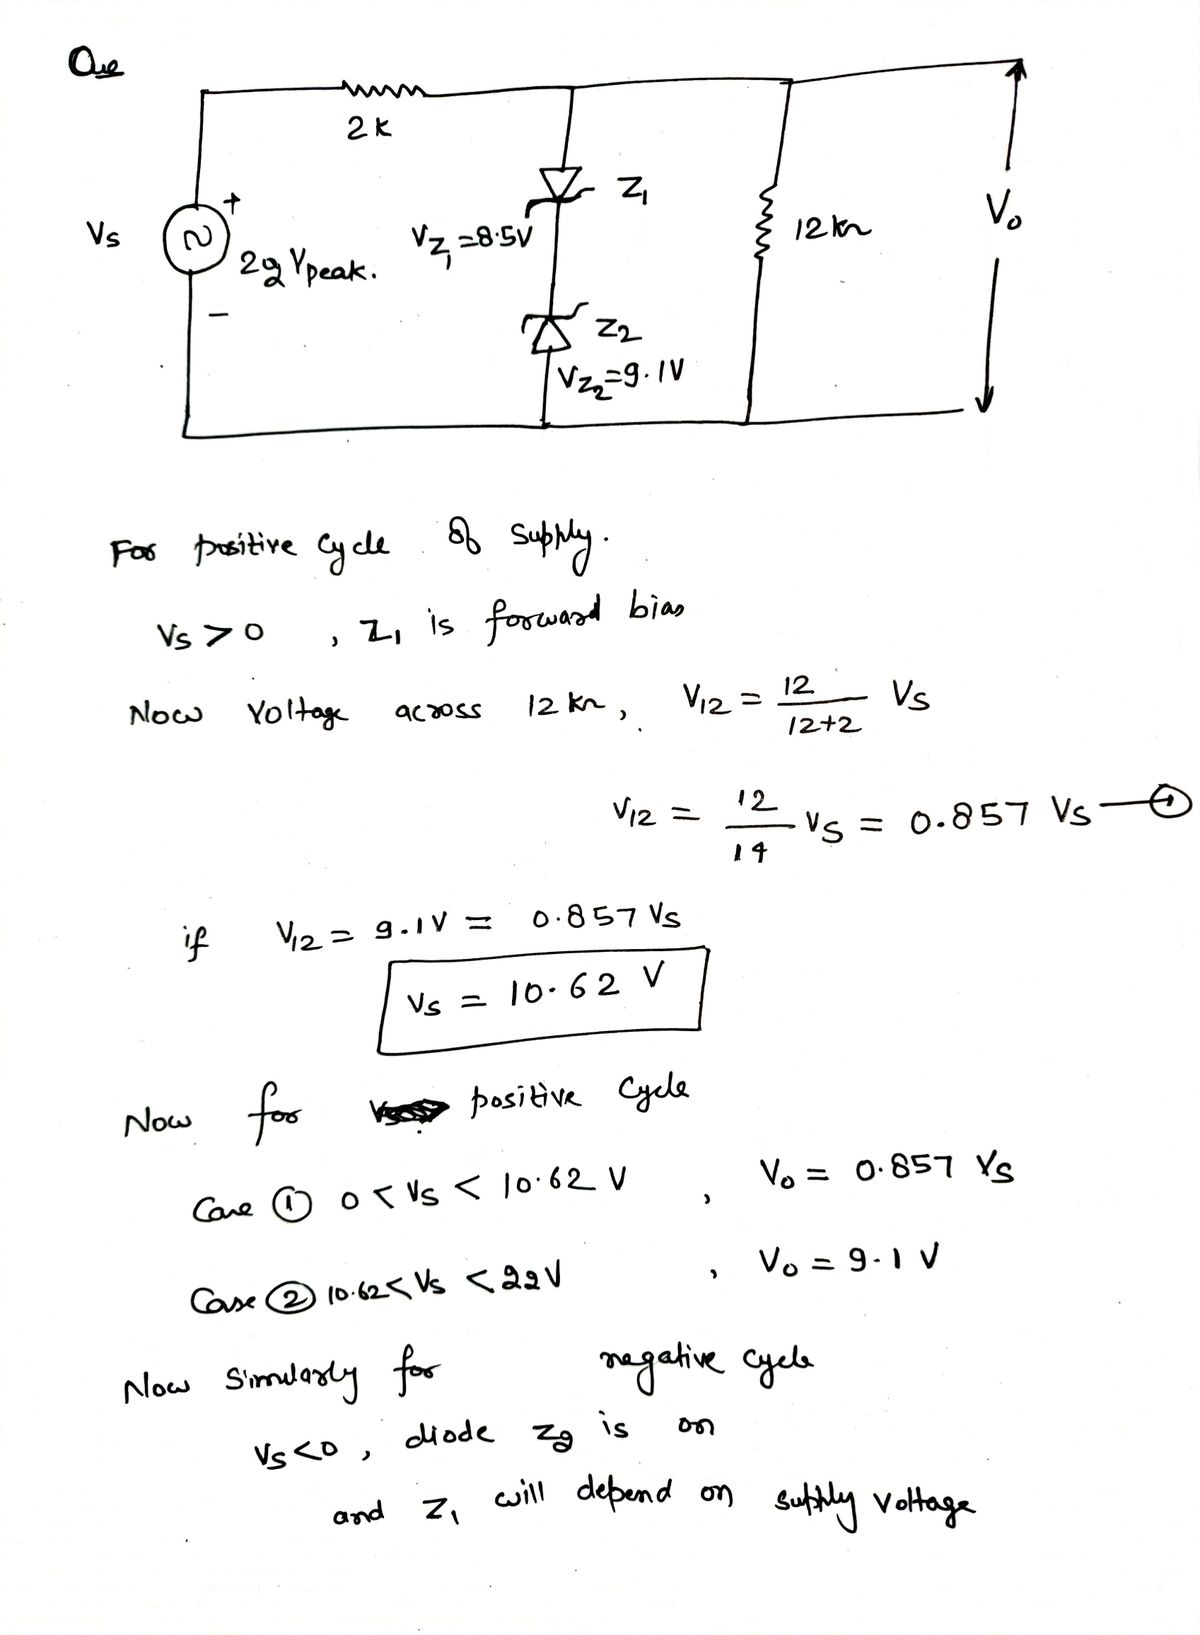 Que
2K
Z1
Vs
+
22 Vpeak.
-
VZ1 =8.5V
Z2
VZ2=9.1V
12kΩ
Vo
For positive Cycle of Supply.
Vs > 0 , Z1 is forward bias
Now Voltage across 12 kΩ, V12 = 12/12+2 Vs
V12 = 12/14 Vs = 0.857 Vs —①
if V12 = 9.1V = 0.857 Vs
Vs = 10.62 V
Now for positive Cycle
Case ① 0 < Vs < 10.62 V , Vo = 0.857 Vs
Case ② 10.62 < Vs < 22V , Vo = 9.1 V
Now Similarly for negative cycle
Vs <0 , diode Z2 is on
and Z1 will depend on supply voltage